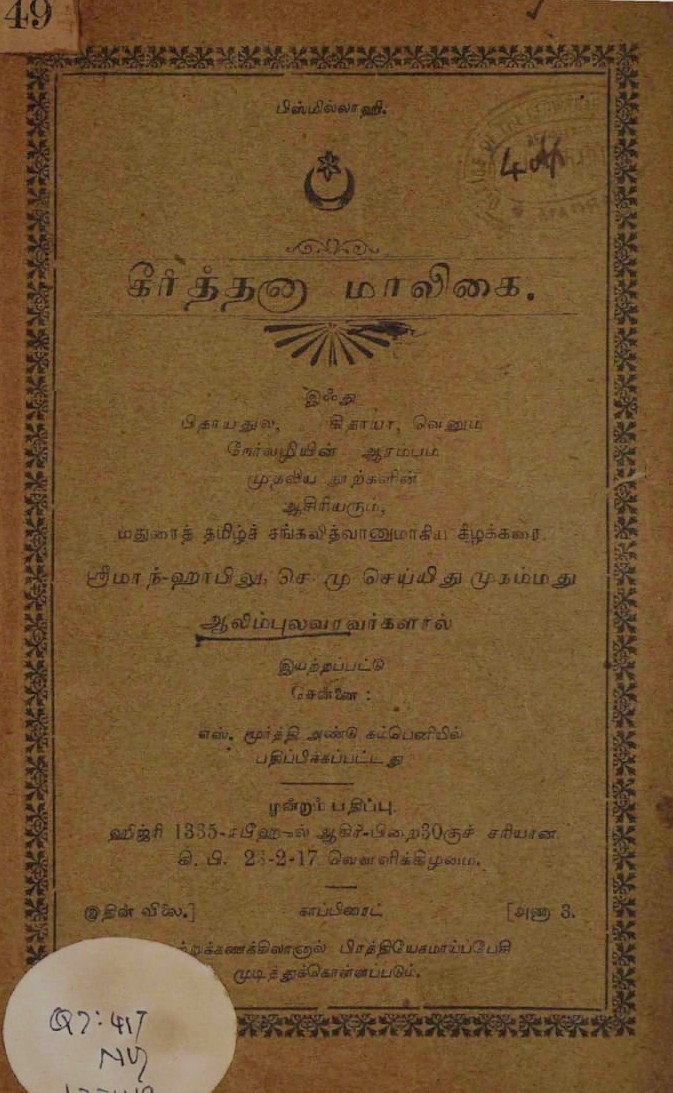 49
பிஸ்மில்லாஹி.
கீர்த்தனா மாலிகை.
இஃது
பிதாயதுல் கிதாயா, வெனும்
நேர்வழியின் ஆரம்பம்
முதலிய நூற்களின்
ஆசிரியரும்,
மதுரைத் தமிழ்ச் சங்கவித்வானுமாகிய கீழக்கரை
ஸ்ரீமாந்-ஹாபிலு செ மு செய்யிது முகம்மது
ஆலிம்புலவரவர்களால்
இயற்றப்பட்டு
சென்னை :
எஸ். மூர்த்தி அண்டு கம்பெனியில்
பதிப்பிக்கப்பட்டது
மூன்றும் பதிப்பு.
ஹிஜ்ரி 1335-ரபீஹுல் ஆகிர்-பிறை30குச் சரியான
கி. பி. 23-2-17 வெள்ளிக்கிழமை.
இதின் விலை.] காப்பிரைட் [அணா 3.
பிரத்தியேகமாய்ப்பேசி
முடித்துக்கொள்ளப்படும்.
Q7:417